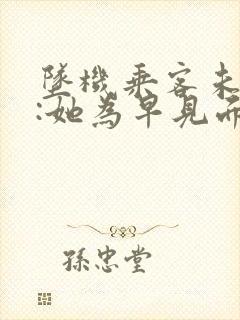 墜機乘客未
:她為早見而
孫忠堂